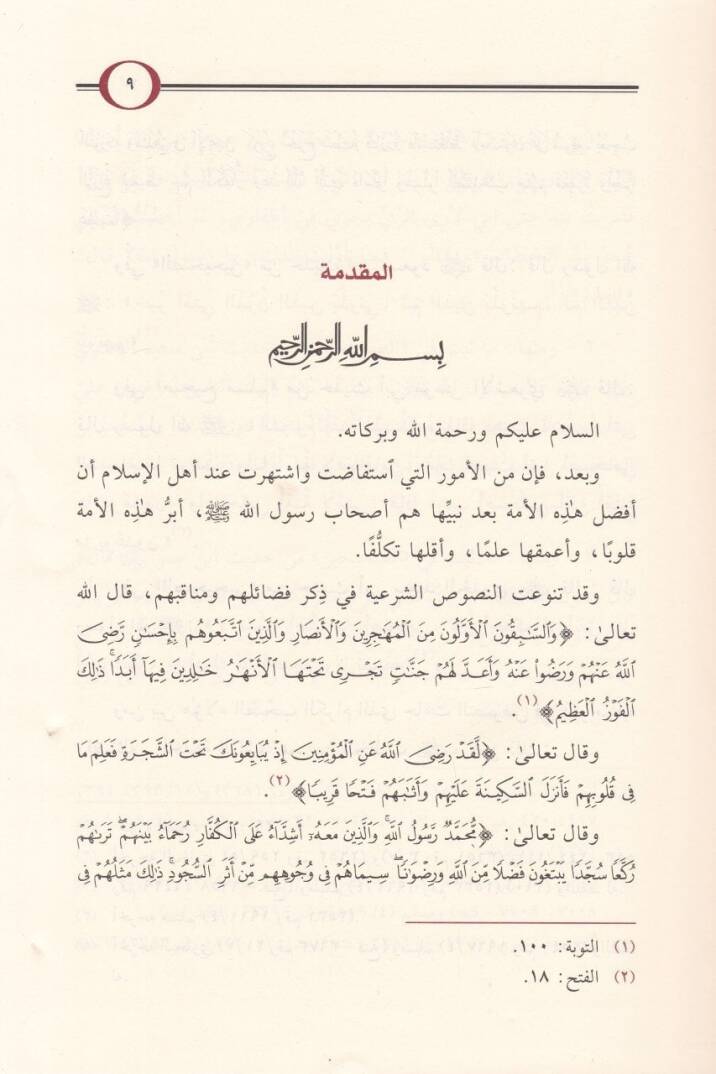 ٩
المقدمة
بسم الله الرحمن الرحيم
السلام عليكم ورحمة الله وبركاته.
وبعد، فإن من الأمور التي ٱستفاضت واشتهرت عند أهل الإسلام أن
أفضل هٰذِه الأمة بعد نبيِّها هم أصحاب رسول الله ﷺ، أبرُّ هٰذِه الأمة
قلوبًا، وأعمقها علمًا، وأقلها تكلُّفًا.
وقد تنوعت النصوص الشرعية في ذِكر فضائلهم ومناقبهم، قال الله
تعالىٰ: ﴿وَٱلسَّٰبِقُونَ ٱلْأَوَّلُونَ مِنَ ٱلْمُهَٰجِرِينَ وَٱلْأَنصَارِ وَٱلَّذِينَ ٱتَّبَعُوهُم بِإِحْسَٰنٍ رَّضِيَ
ٱللَّهُ عَنْهُمْ وَرَضُوا۟ عَنْهُ وَأَعَدَّ لَهُمْ جَنَّٰتٍ تَجْرِى تَحْتَهَا ٱلْأَنْهَٰرُ خَٰلِدِينَ فِيهَآ أَبَدًا ۚ ذَٰلِكَ
ٱلْفَوْزُ ٱلْعَظِيمُ﴾(١).
وقال تعالىٰ: ﴿لَّقَدْ رَضِيَ ٱللَّهُ عَنِ ٱلْمُؤْمِنِينَ إِذْ يُبَايِعُونَكَ تَحْتَ ٱلشَّجَرَةِ فَعَلِمَ مَا
فِى قُلُوبِهِمْ فَأَنزَلَ ٱلسَّكِينَةَ عَلَيْهِمْ وَأَثَٰبَهُمْ فَتْحًا قَرِيبًا﴾(٢).
وقال تعالىٰ: ﴿مُّحَمَّدٌ رَّسُولُ ٱللَّهِ ۚ وَٱلَّذِينَ مَعَهُۥٓ أَشِدَّآءُ عَلَى ٱلْكُفَّارِ رُحَمَآءُ بَيْنَهُمْ ۖ تَرَىٰهُمْ
رُكَّعًا سُجَّدًا يَبْتَغُونَ فَضْلًا مِّنَ ٱللَّهِ وَرِضْوَٰنًا ۖ سِيمَاهُمْ فِى وُجُوهِهِم مِّنْ أَثَرِ ٱلسُّجُودِ ۚ ذَٰلِكَ مَثَلُهُمْ فِى
(١) التوبة: ١٠٠.
(٢) الفتح: ١٨.